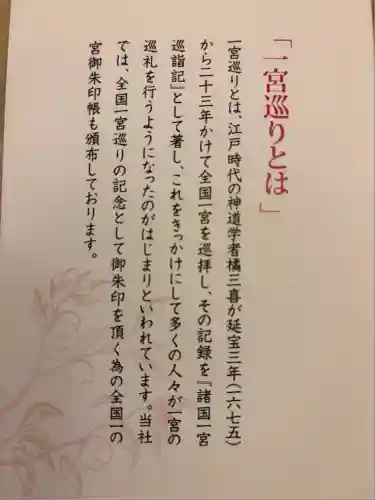 「一宮巡りとは」
一宮巡りとは、江戸時代の神道学者橘三喜が延宝三年(一六七五)
から二十三年かけて全国一宮を巡拝し、その記録を『諸国一宮
巡詣記』として著し、これをきっかけにして多くの人々が一宮の
巡礼を行うようになったのがはじまりといわれています。当社
では、全国一宮巡りの記念として御朱印を頂く為の全国一の
宮御朱印帳も頒布しております。